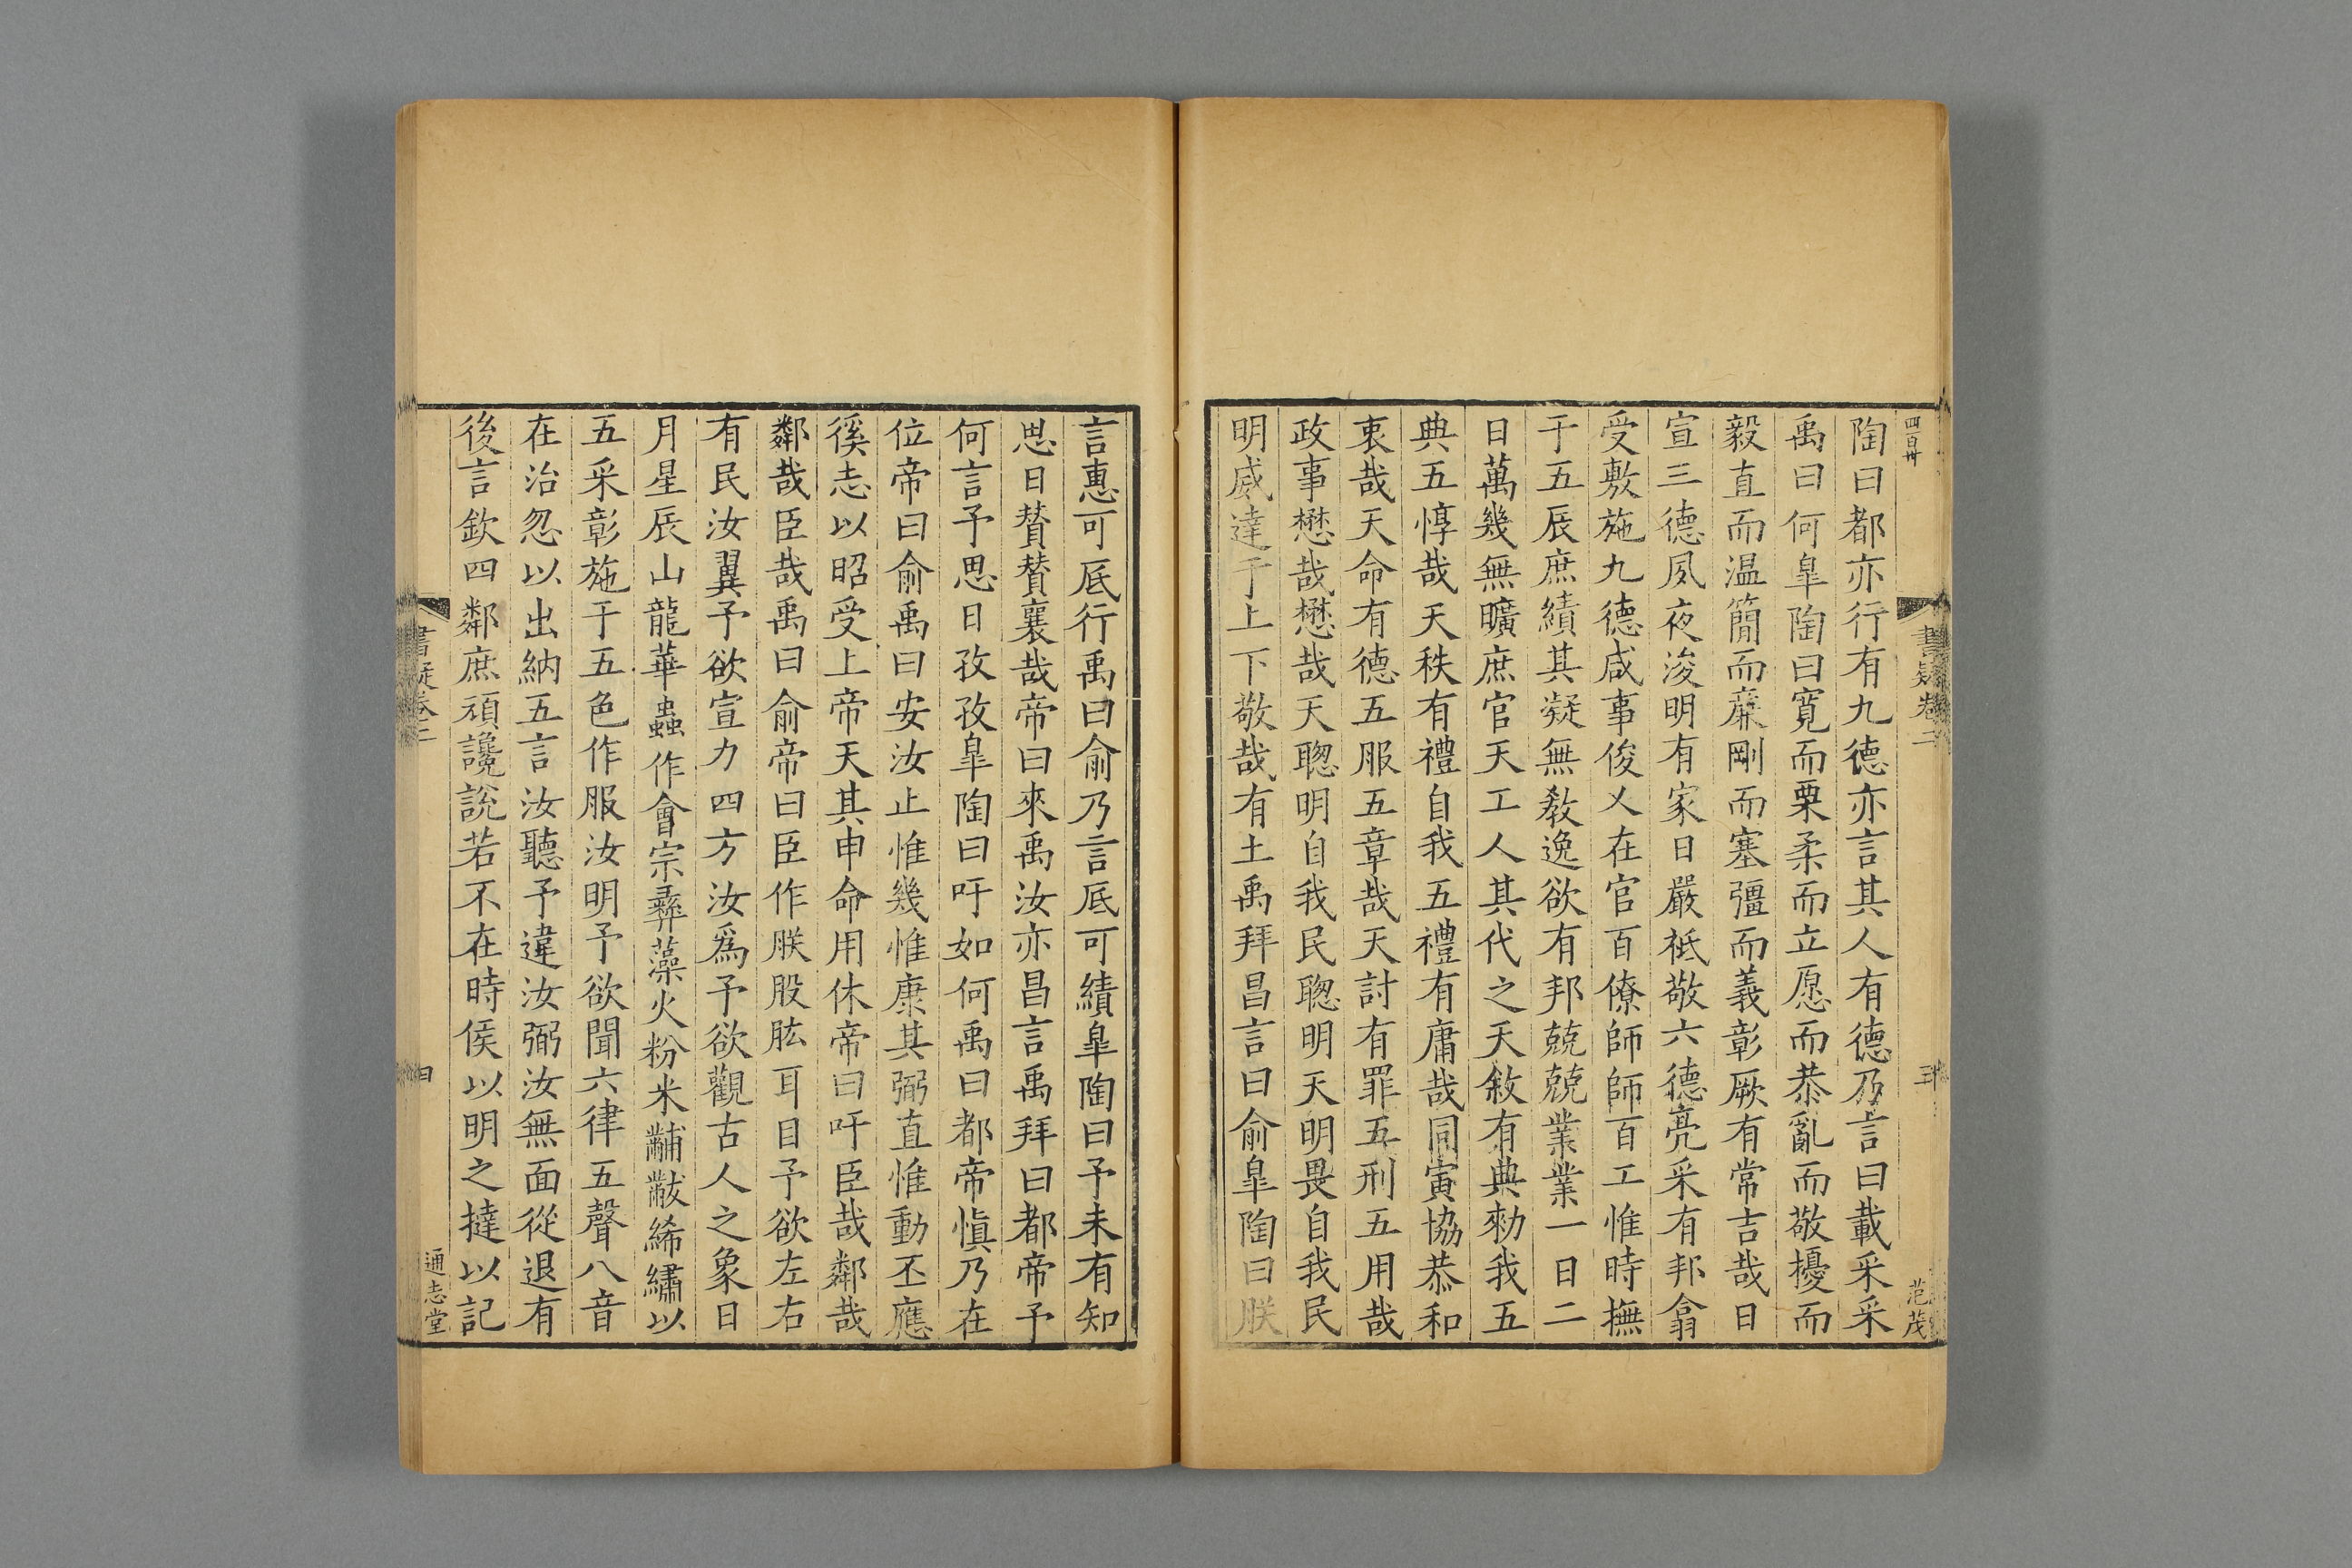 四百卅
書疑卷二
三
范茂
陶曰都亦行有九德亦言其人有德乃言曰載采采
禹曰何皐陶曰寬而栗柔而立愿而恭亂而敬擾而
毅直而溫簡而廉剛而塞彊而義彰厥有常吉哉日
宣三德夙夜浚明有家日嚴祗敬六德亮采有邦翕
受敷施九德咸事俊乂在官百僚師師百工惟時撫
于五辰庶績其凝無敎逸欲有邦兢兢業業一日二
日萬幾無曠庶官天工人其代之天敘有典勑我五
典五惇哉天秩有禮自我五禮有庸哉同寅協恭和
衷哉天命有德五服五章哉天討有罪五刑五用哉
政事懋哉懋哉天聦明自我民聦明天明畏自我民
明威達于上下敬哉有土禹拜昌言曰俞皐陶曰朕
言惠可厎行禹曰俞乃言厎可績皐陶曰予未有知
思日贊贊襄哉帝曰來禹汝亦昌言禹拜曰都帝予
何言予思日孜孜皐陶曰吁如何禹曰都帝愼乃在
位帝曰俞禹曰安汝止惟幾惟康其弼直惟動丕應
徯志以昭受上帝天其申命用休帝曰吁臣哉鄰哉
鄰哉臣哉禹曰俞帝曰臣作朕股肱耳目予欲左右
有民汝翼予欲宣力四方汝爲予欲觀古人之象日
月星辰山龍華蟲作會宗彝藻火粉米黼黻絺繡以
五采彰施于五色作服汝明予欲聞六律五聲八音
在治忽以出納五言汝聽予違汝弼汝無面從退有
後言欽四鄰庶頑讒說若不在時侯以明之撻以記
書疑卷二
四
通志堂